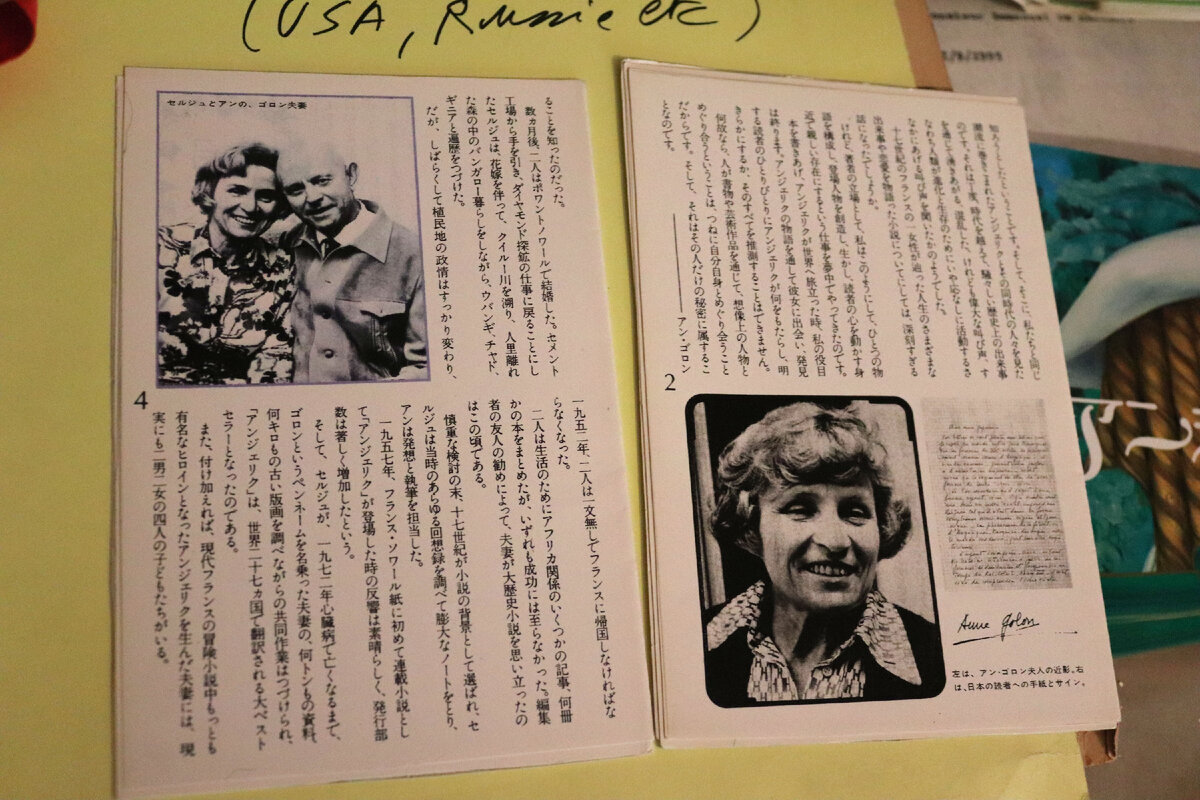 (USA, Russie etc)
セルジュとアンの、ゴロン夫妻
ることを知ったのだった。
数ヵ月後、二人はポワントノワールで結婚した。セメント
工場から手を引き、ダイヤモンド探鉱の仕事に戻ることにし
たセルジュは、花嫁を伴って、クイルー川を溯り、人里離れ
た森の中のバンガロー暮らしをしながら、ウバンギ、チャド、
ギニアと遍歴をつづけた。
だが、しばらくして植民地の政情はすっかり変わり、
一九五二年、二人は一文無しでフランスに帰国しなければな
らなくなった。
二人は生活のためにアフリカ関係のいくつかの記事、何冊
かの本をまとめたが、いずれも成功には至らなかった。編集
者の友人の勧めによって、夫妻が大歴史小説を思い立ったの
はこの頃である。
慎重な検討の末、十七世紀が小説の背景として選ばれ、セ
ルジュは当時のあらゆる回想録を調べて膨大なノートをとり、
アンは発想と執筆を担当した。
一九五七年、フランス・ソワール紙に初めて連載小説とし
て「アンジェリク」が登場した時の反響は素晴らしく、発行部
数は著しく増加したという。
そして、セルジュが、一九七二年心臓病で亡くなるまで、
ゴロンというペンネームを名乗った夫妻の、何トンもの資料、
何キロもの古い版画を調べながらの共同作業はつづけられ、
「アンジェリク」は、世界二十七ヵ国で翻訳される大ベスト
セラーとなったのである。
また、付け加えれば、現代フランスの冒険小説中もっとも
有名なヒロインとなったアンジェリクを生んだ夫妻には、現
実にも二男二女の四人の子どもたちがいる。
4
知ろうとしたということです。そして、そこに、私たちと同じ
潮流に巻きこまれたアンジェリクとその同時代の人々を見た
のです。それは丁度、時代を越えて、騒々しい歴史上の出来事
を通じて湧きあがる、混乱した、けれども偉大な叫び声、す
なわち人類が進化と生存のためにいや応なしに活動するさ
なかにあげる叫び声を聞いたかのようでした。
十七世紀のフランスの一女性が辿った人生のさまざまな
出来事や恋愛を物語った小説についてにしては、深刻すぎる
話になったでしょうか。
けれど、著者の立場として、私はこのようにして、ひとつの物
語を構成し、登場人物を創造し、生かし、読者の心を動かす身
近で親しい存在にするという仕事を夢中でやってきたのです。
本を書きあげ、アンジェリクが世界へ旅立った時、私の役目
は終ります。アンジェリクの物語を通して彼女に出会い、発見
する読者のひとりびとりにアンジェリクが何をもたらし、明
きらかにするか、そのすべてを推測することはできません。
何故なら、人が書物や芸術作品を通じて、想像上の人物と
めぐり合うということは、つねに自分自身とめぐり合うこと
だからです。そして、それはその人だけの秘密に属するこ
となのです。
アン・ゴロン
2
Anne Golon
左は、アン・ゴロン夫人の近影。右
は、日本の読者への手紙とサイン。